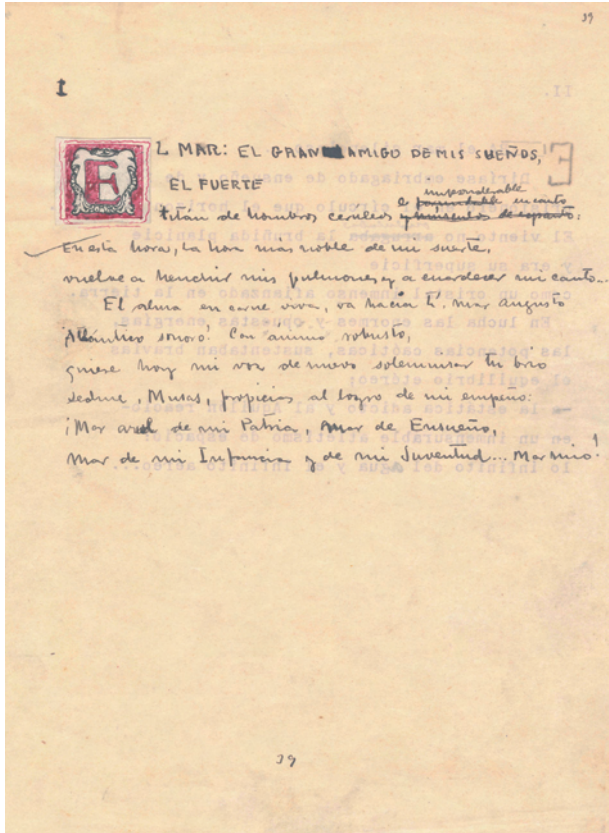 39
I
EL MAR: EL GRAN AMIGO DE MIS SUEÑOS,
EL FUERTE
imponderable
e encanto
titán de hombros cerúleos y músculos de espanto:
En esta hora, la hora más noble de mi suerte,
vuelve a henchir mis pulmones y a enardecer mi canto...
El alma en carne viva, va hacia ti, mar augusto
¡Atlántico sonoro! Con ánimo robusto,
quiere hoy mi voz de nuevo solemnizar tu brío
sedme, Musas, propicias al logro de mi empeño:
¡Mar azul de mi Patria, Mar de Ensueño,
Mar de mi Infancia y de mi Juventud... Mar mío!
39